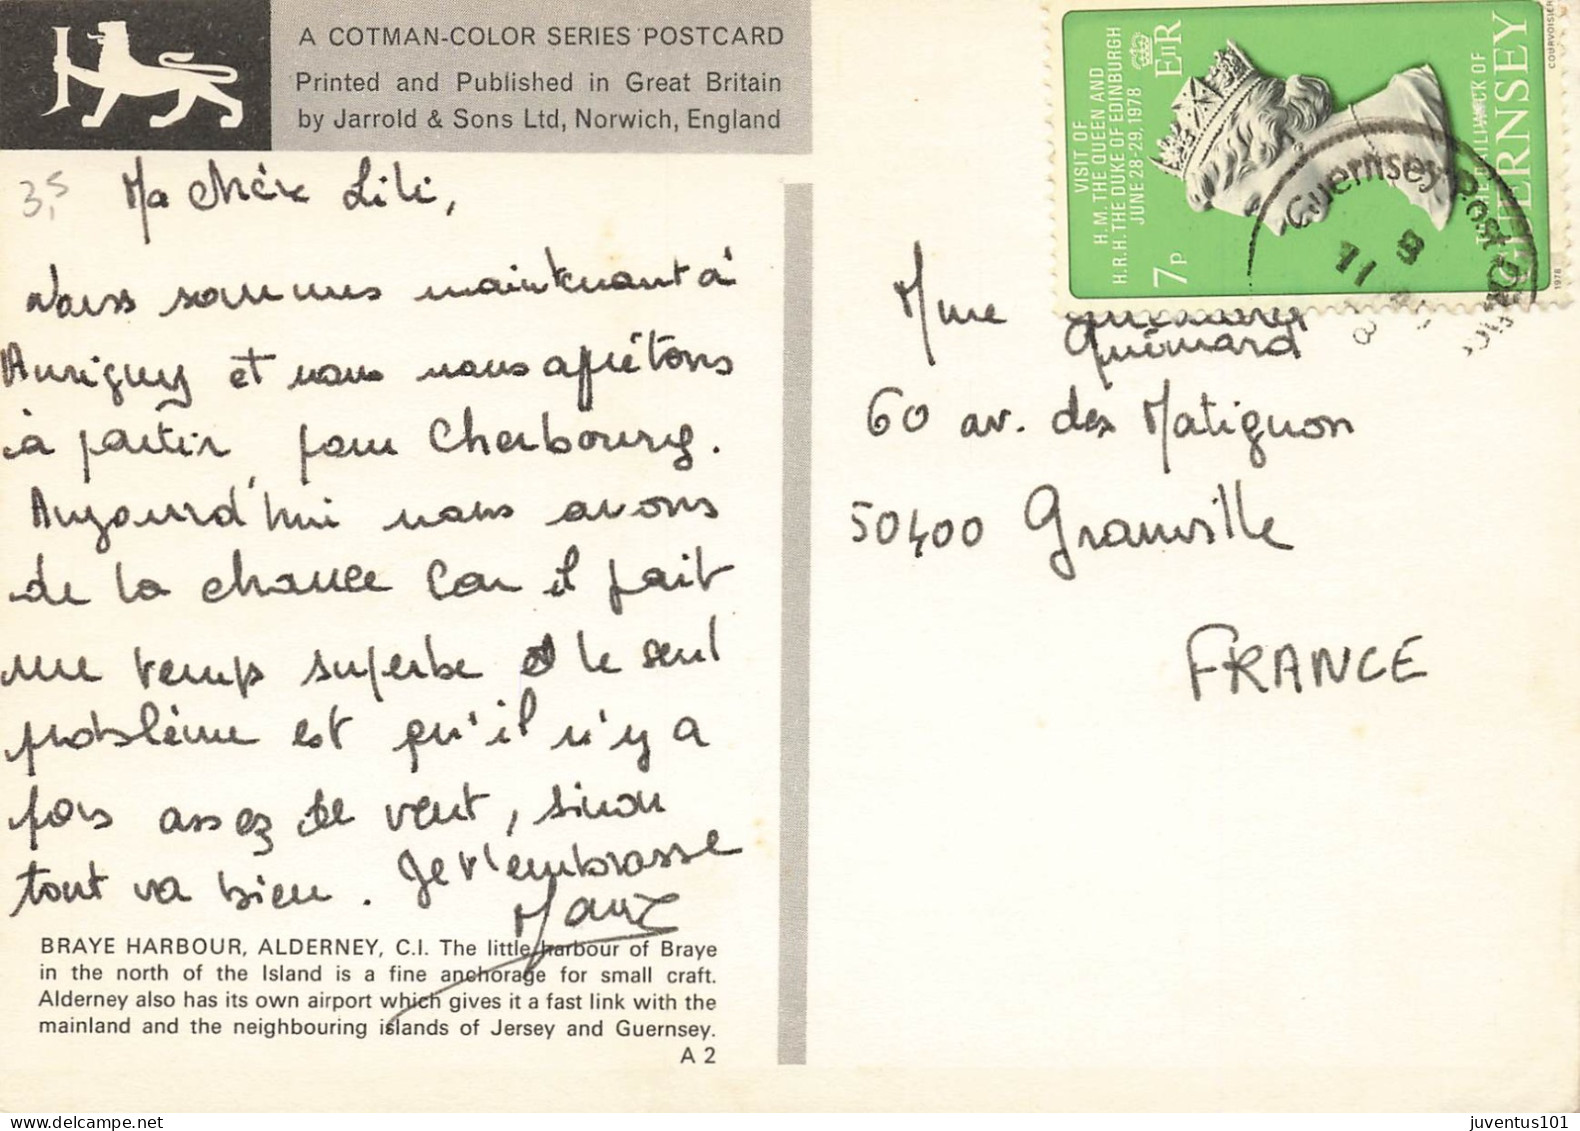 A COTMAN-COLOR SERIES POSTCARD
Printed and Published in Great Britain
by Jarrold & Sons Ltd, Norwich, England
3,5
Ma chère Lili,
Nous sommes maintenant à
Aurigny et nous nous apprêtons
à partir pour Cherbourg.
Aujourd'hui nous avons
de la chance car il fait
un temps superbe et le seul
problème est qu'il n'y a
pas assez de vent, sinon
tout va bien. Je t'embrasse
BRAYE HARBOUR, ALDERNEY, C.I. The little harbour of Braye
in the north of the Island is a fine anchorage for small craft.
Alderney also has its own airport which gives it a fast link with the
mainland and the neighbouring islands of Jersey and Guernsey.
A 2
VISIT OF
H.M. THE QUEEN AND
H.R.H. THE DUKE OF EDINBURGH
JUNE 28-29, 1978
EIIR
7P
THE BAILIWICK OF
GUERNSEY
COURVOISIER
1978
Guernsey Post Office
Mme
Guémard
60 av. des Matignon
50400 Granville
FRANCE
juventus101